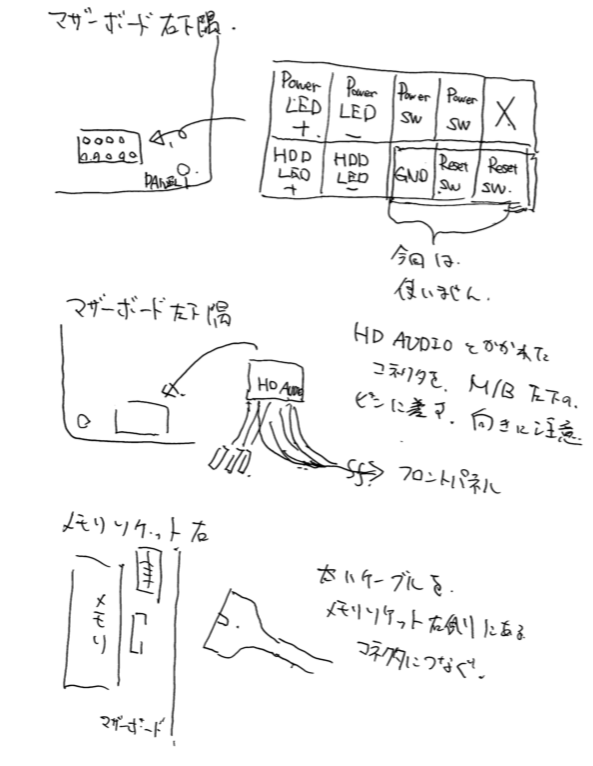 マザーボード右下隅.
Power LED +
Power LED −
Power SW
Power SW
X
HDD LED +
HDD LED −
GND
Reset SW
Reset SW.
PANEL1
今回は.
使いません.
マザーボード左下隅
HD AUDIOとかかれた
コネクタを、M/B左下の.
ピンに差す. 向きに注意.
HD Audio
フロントパネル
メモリソケット右
メモリ
マザーボード
太いケーブルを.
メモリソケット右側にある
コネクタにつなぐ.